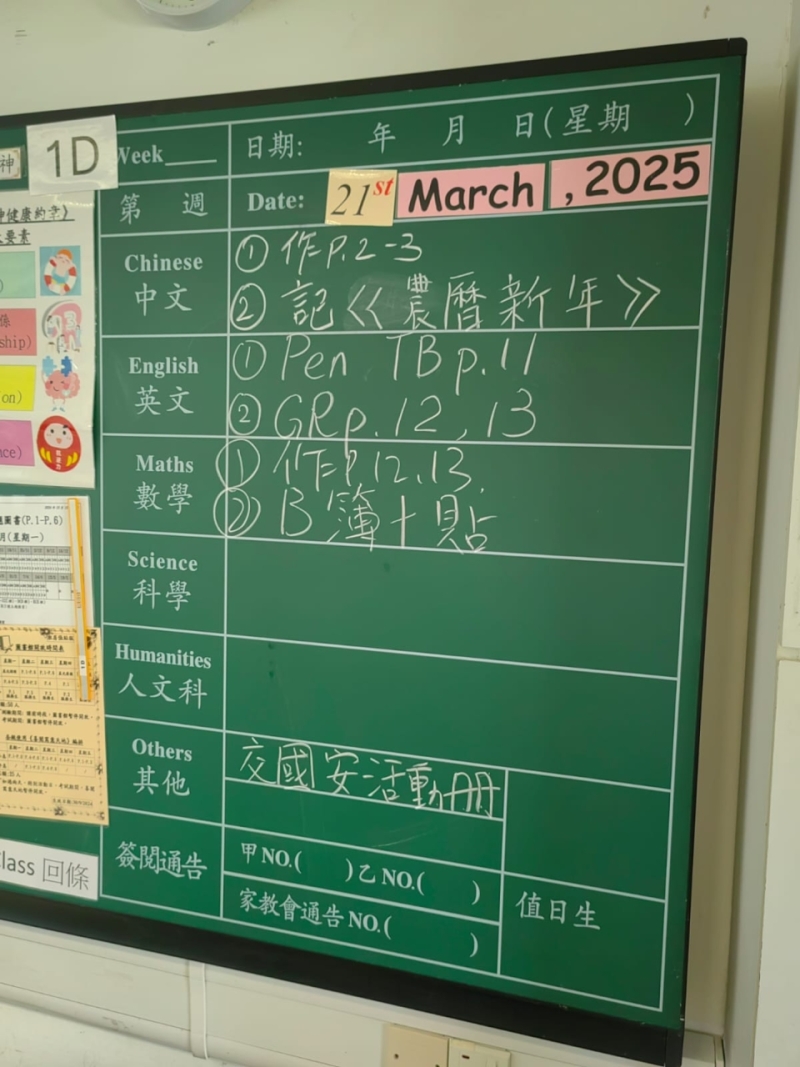 神
1D
Week
日期: 年 月 日(星期 )
第 週
Date: 21st March , 2025
Chinese
中文
① 作p.2-3
② 記《農曆新年》
English
英文
① Pen TB p.11
② GR p.12, 13
Maths
數學
① 作P.12,13.
② B簿+貼
Science
科學
Humanities
人文科
Others
其他
交國安活動冊
簽閱通告
甲 NO.( ) 乙 NO.( )
家教會通告 NO.( )
值日生
ship)
on)
nce)
圖書(P.1-P.6)
月(星期一)
Class 回條